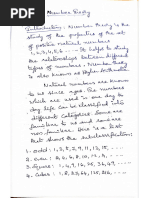 Number Theory
Introduction : Number theory is the
study of the properties of the set
of positive natural numbers
1, 2, 3, 4, 5, 6 .... It helps to study
the relationships between different
types of numbers. Number theory
is also known as Higher Arithmetic.
Natural numbers are known
to us since ages. The numbers
which are used in our day to
day life can be classified into
different categories. Some are
familiar to us and some are
non-familiar. Here is a list
that shows the subclassification:
1. odd : 1, 3, 5,
2. even : 2, 4, 6, 8, 10,
3. square : 1, 4, 9, 16, 25, 36,
4. cube : 1, 8, 27, 64, 125,